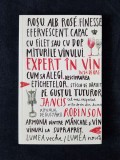 ROȘU ALB ROSÉ FINESSE
EFERVESCENT CAPAC
CU FILET SAU CU DOP
MITURILE VINULUI
EXPERT ÎN VIN
CUM SĂ ALEGI
DESCIFRAREA
ETICHETELOR
PE GUSTUL TUTUROR
JANCIS
ROBINSON
ARMONIA DINTRE MÂNCARE ȘI VIN
VINURI LA SUPRAPREȚ
LUMEA VECHE / LUMEA NOUĂ